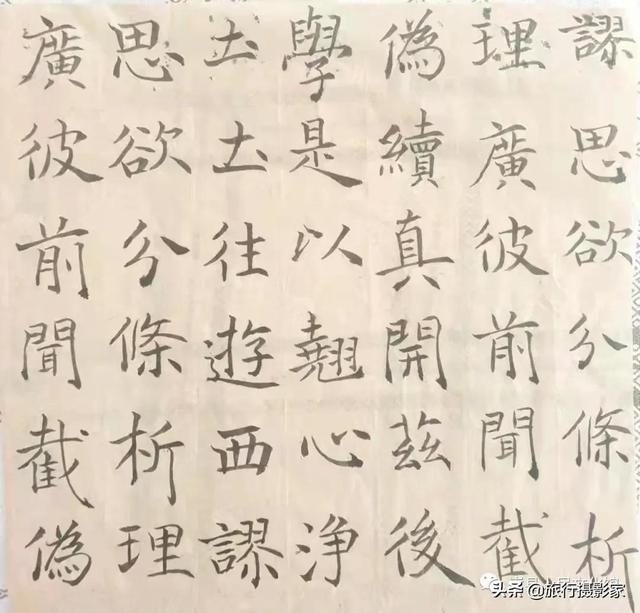 謬思欲分條析
理廣彼前聞截
偽續真開茲後
學是以翹心淨
土土往遊西謬
思欲分條析理
廣彼前聞截偽
头条 @旅行摄影家